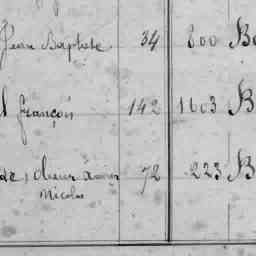 Jean Baptiste 34 800 B
l françois 142 1603 B
72 223 B
Nicolas